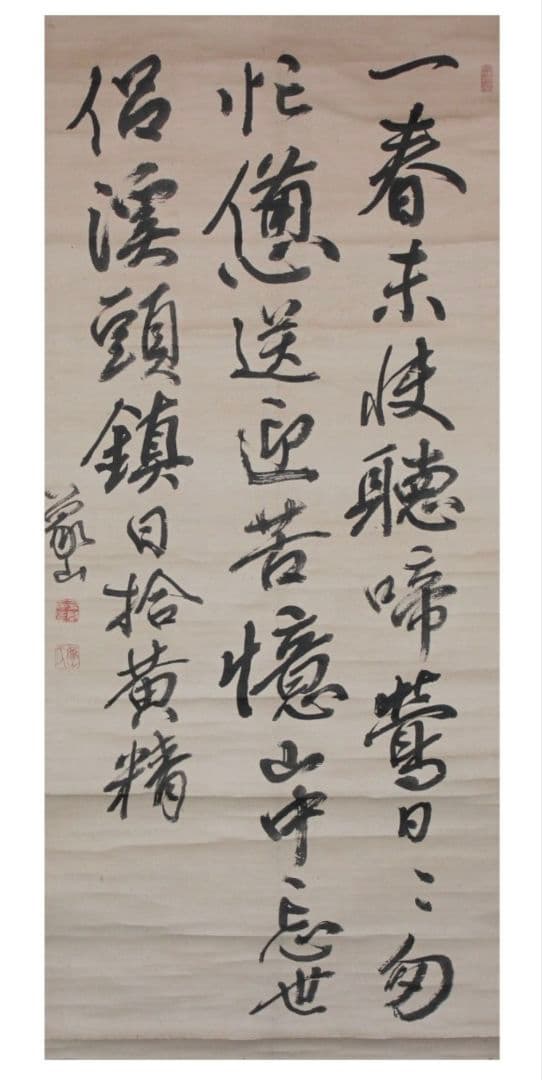 一春未快聽啼鶯日〻匆
忙憊送迎苦憶山中忘世
侶溪頭鎮日拾黄精
蒙山